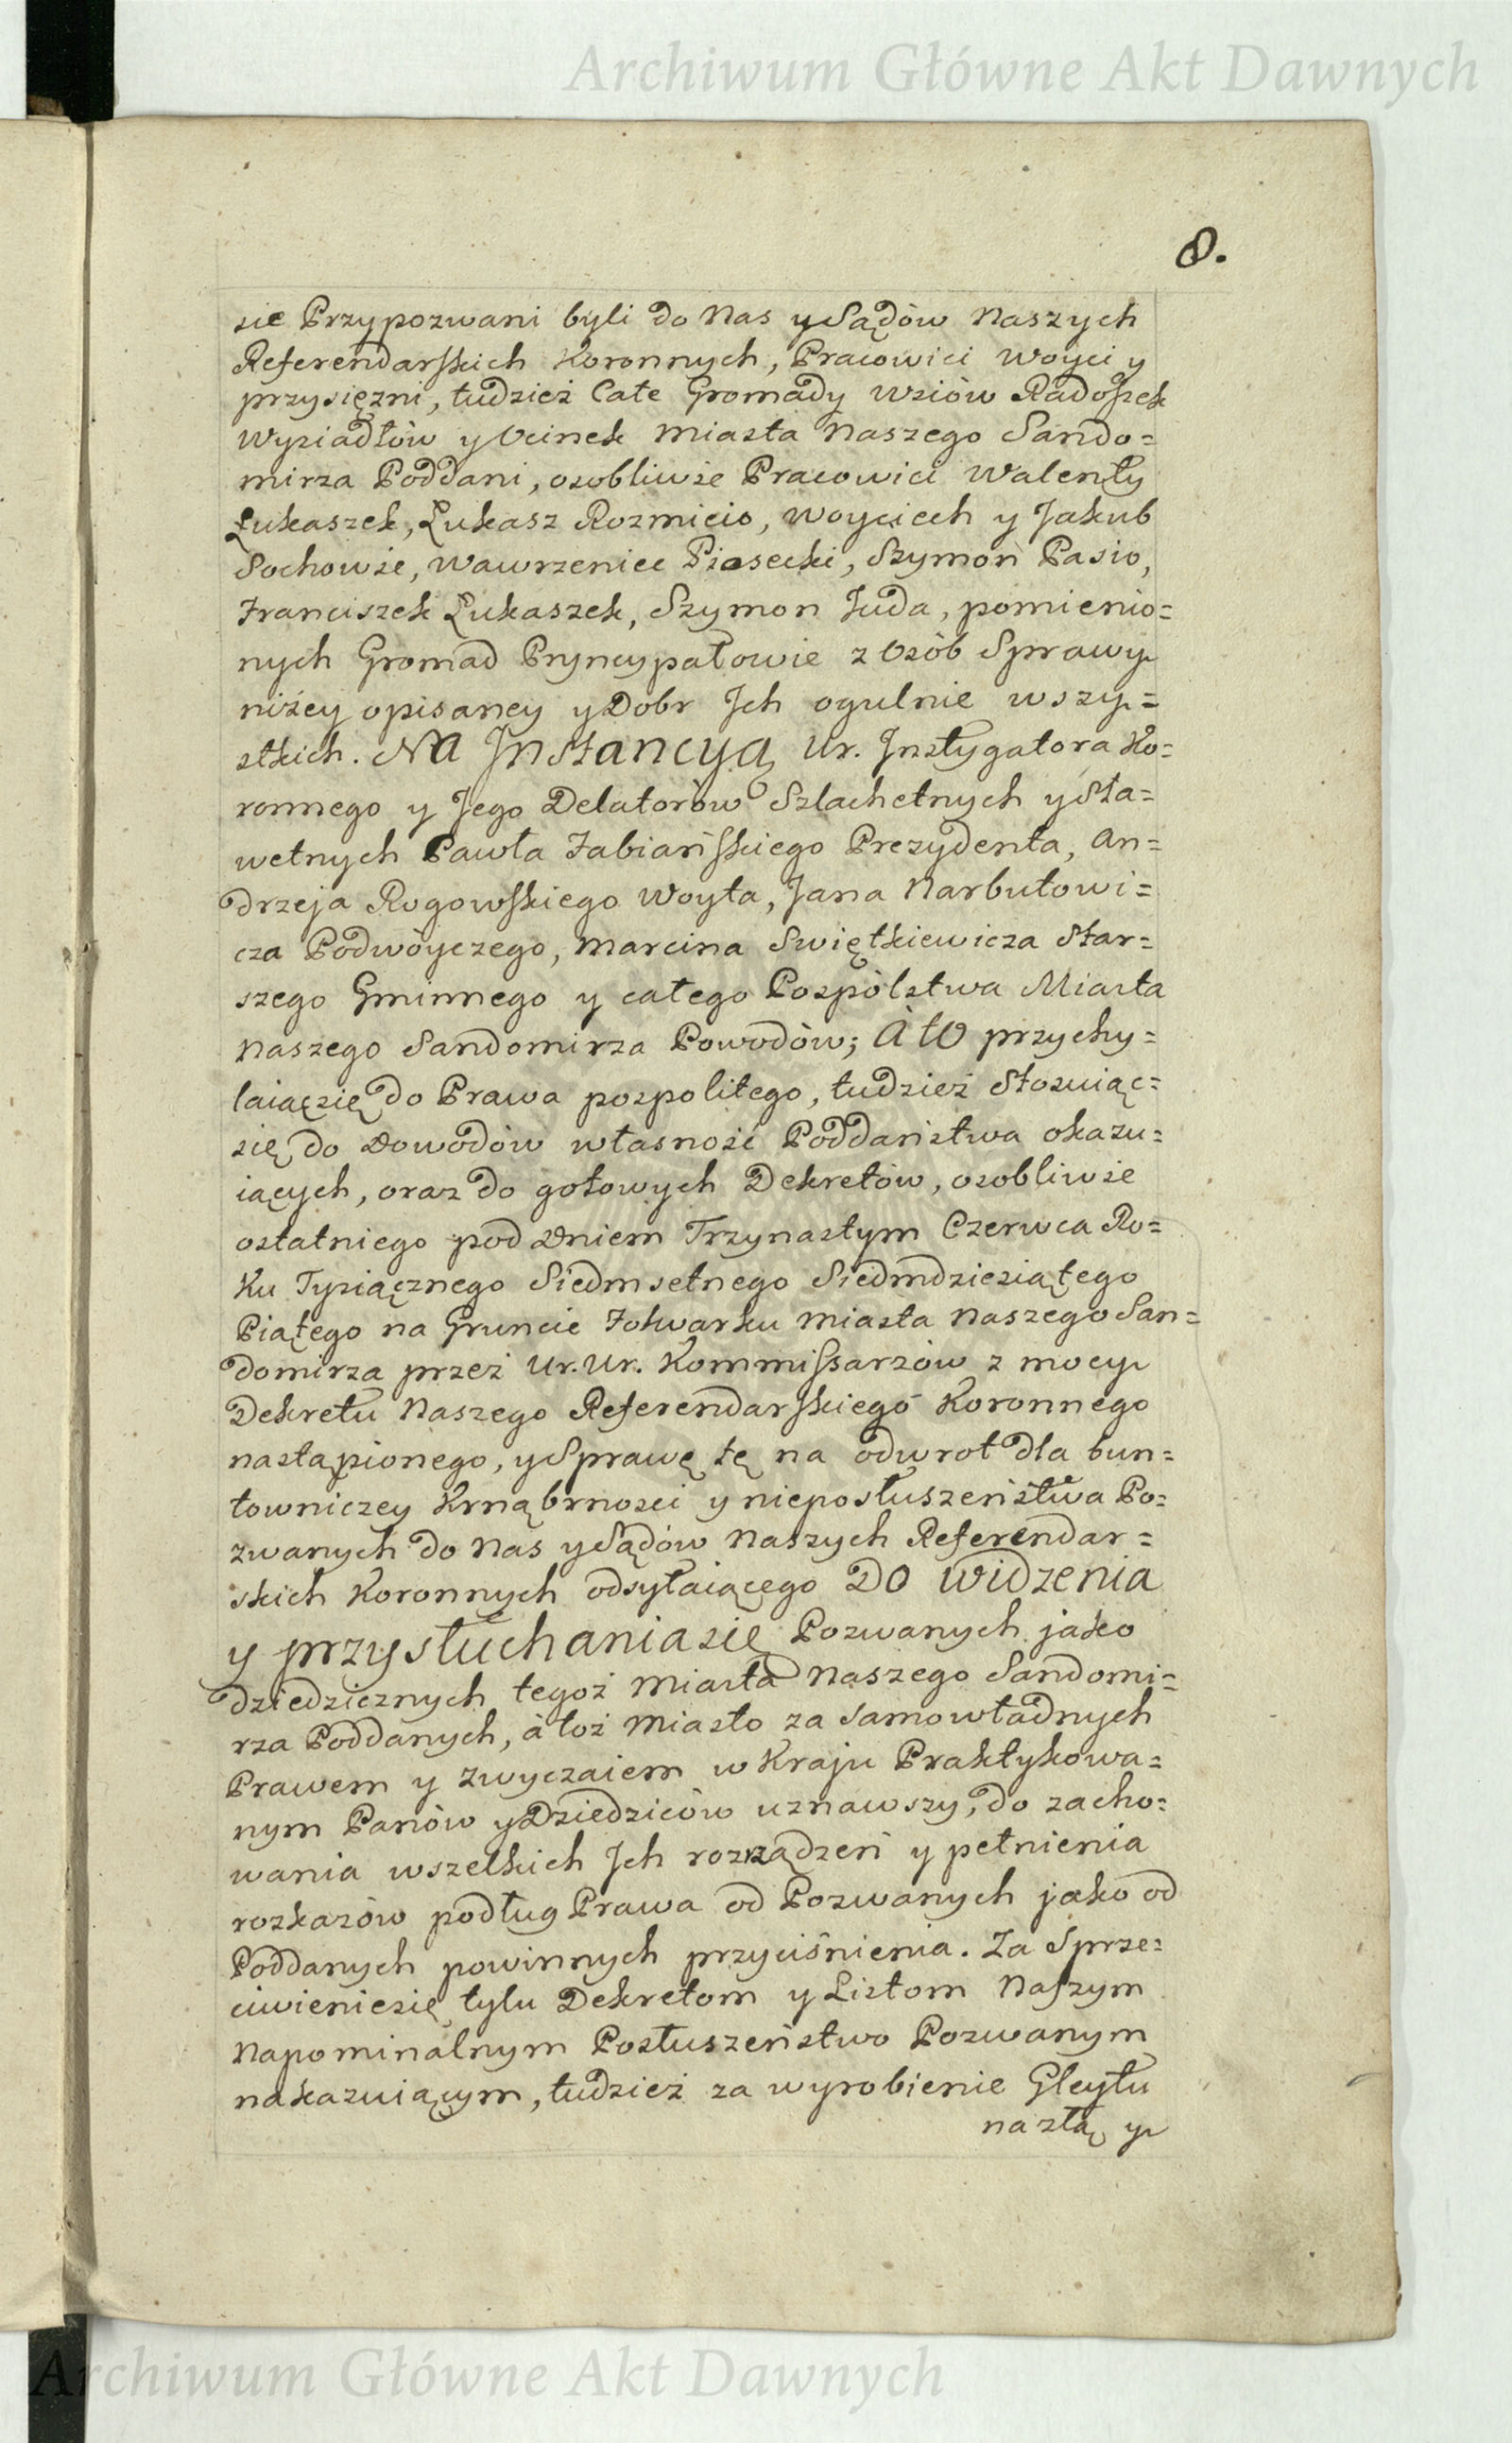 Archiwum Główne Akt Dawnych
8.
sie Przypozwani byli do Nas y Sądów Naszych
Referendarskich Koronnych, Pracowici Woyci y
przysięzni, tudzież Całe Gromady Wsiów Radoszek
Wysiadłów y Ocinek Miasta Naszego Sando=
mirza Poddani, osobliwie Pracowici Walenty
Łukaszek, Łukasz Rozmicio, Woyciech y Jakub
Sochowie, Wawrzeniec Piasecki, Szymon Pasio,
Franciszek Łukaszek, Szymon Juda, pomienio=
nych Gromad Pryncypałowie z Osób Sprawy
niżey opisaney y Dobr Jch ogulnie wszy=
stkich. Na Jnstancyą Ur. Jnstygatora Ko=
ronnego y Jego Delatorów Szlachetnych y Sła=
wetnych Pawła Fabiańskiego Prezydenta, An=
drzeja Rogowskiego Woyta, Jana Narbutowi=
cza Podwóyczego, Marcina Swiętkiewicza Star=
szego Gminnego y całego Pospólstwa Miasta
Naszego Sandomirza Powodów; A to przychy=
laiącsię do Prawa pospolitego, tudzież Stosuiąc=
się do Dowodów własność Poddaństwa okazu=
iących, oraz do gotowych Dekretów, osobliwie
ostatniego pod Dniem Trzynastym Czerwca Ro=
ku Tysiącznego Siedmsetnego Siedmdziesiątego
Piątego na Gruncie Folwarku Miasta Naszego San=
domirza przez Ur. Ur. Kommissarzów z mocy
Dekretu Naszego Referendarskiego Koronnego
nastąpionego, y Sprawę tę na odwrot dla bun=
towniczey Krnąbrności y nieposłuszeństwa Po=
zwanych do Nas y Sądów Naszych Referendar=
skich Koronnych odsyłaiącego Do widzenia
y przysłuchania się Pozwanych jako
dziedzicznych tegoż Miasta Naszego Sandomi=
rza Poddanych, à toż Miasto za Samowładnych
Prawem y zwyczaiem w Kraju Praktykowa=
nym Panów y Dziedziców uznawszy, do zacho=
wania wszelkich Jch rozrządzeń y pełnienia
rozkazów podług Prawa od Pozwanych jako od
Poddanych powinnych przyciśnienia. Za Sprze=
ciwieniesię tylu Dekretom y Listom Naszym
Napominalnym Posłuszeństwo Pozwanym
nakazuiącym, tudzież za wyrobienie Gleytu
na złą y
Archiwum Główne Akt Dawnych